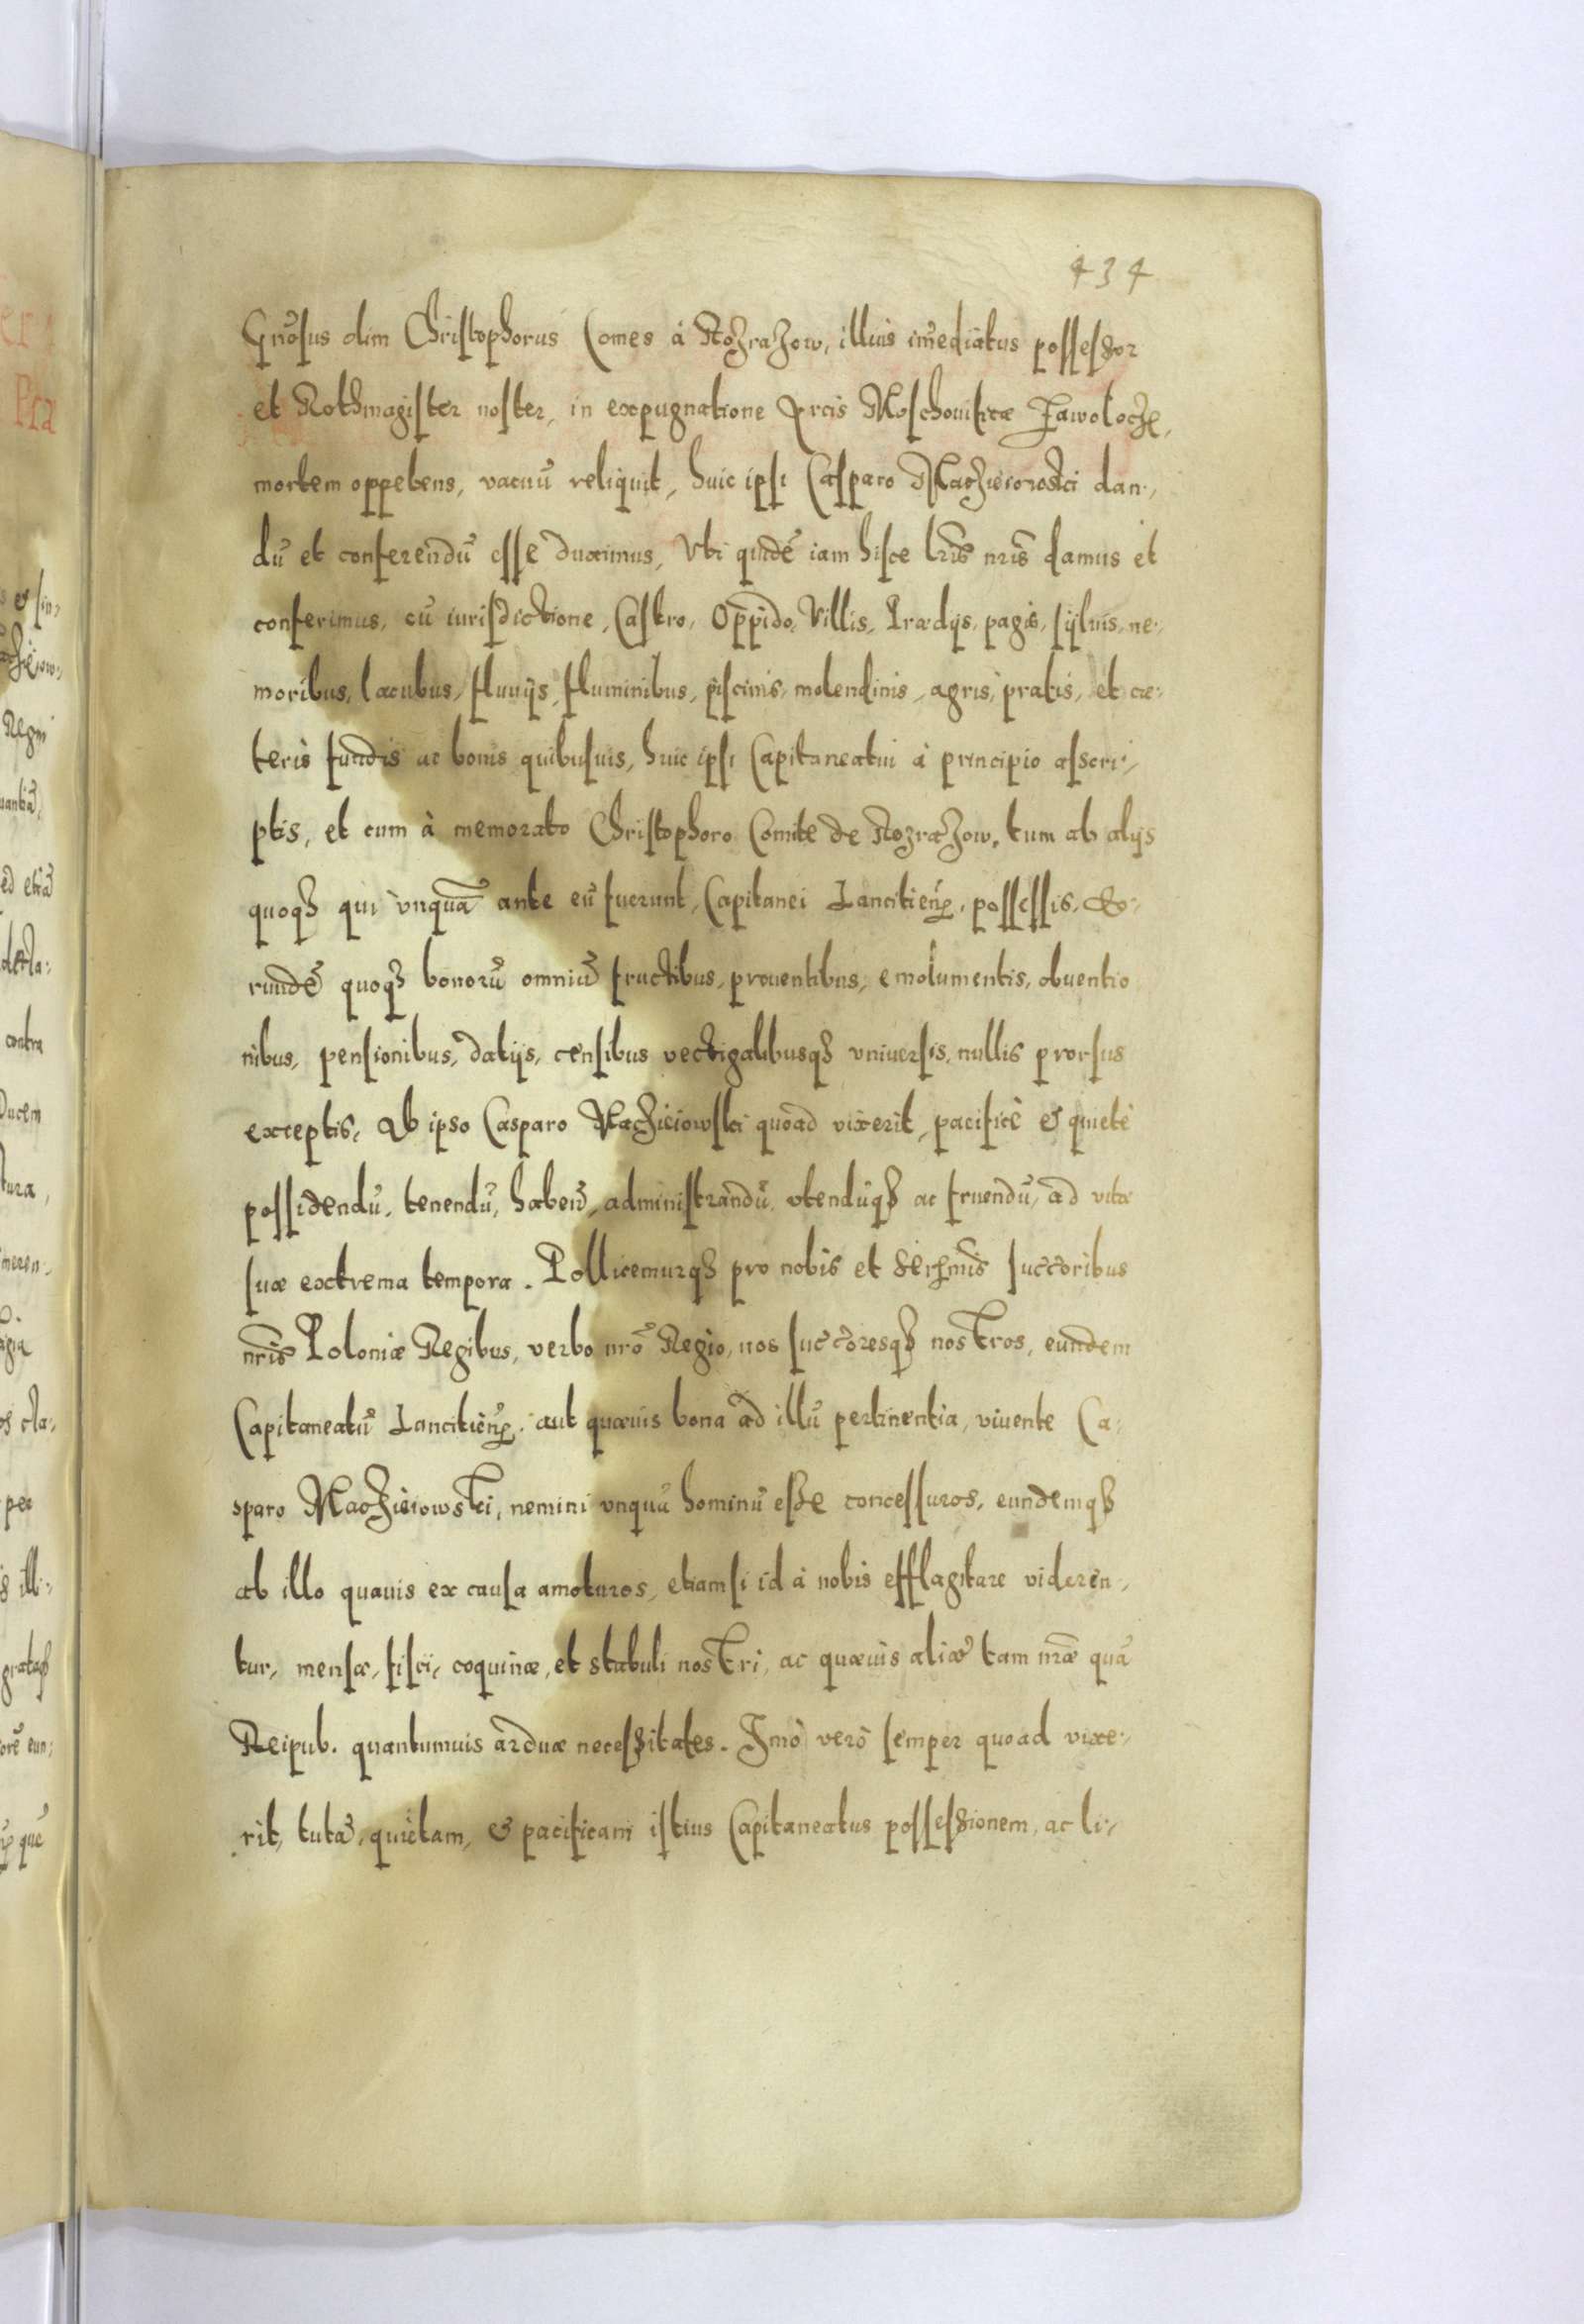 434
Gn̄osus olim Christophorus Comes à Rozrazow, illius im̄ediatus possessor
et Rothmagister noster, in expugnatione Arcis Moschouiticæ Zawolocze,
mortem oppetens, vacuū reliquit, huic ipsi Casparo Maczieiowski dan:,
dū et conferendū esse duximus, Vti quidē iam hisce lr̄is nr̄is damus et
conferimus, cū iurisdictione, Castro, Oppido, Villis, Prædijs, pagis, syluis, ne:,
moribus, lacubus, fluuijs, fluminibus, piscinis, molendinis, agris, pratis, et cæ:,
teris fundis ac bonis quibusuis, huic ipsi Capitaneatui à principio ascri:,
ptis, et cum à memorato Christophoro Comite de Rozrazow, tum ab alijs
quoqȝ qui vnquā ante eū fuerunt, Capitanei Lancitien̄. possessis, Eo:,
rundē quoqȝ bonorū omniū fructibus, prouentibus, emolumentis, obuentio
nibus, pensionibus, datijs, censibus vectigalibusqȝ vniuersis, nullis prorsus
exceptis, Ab ipso Casparo Maczieiowski quoad vixerit, pacificè & quietè
possidendū, tenendū, haben̄, administrandū, vtendūqȝ ac fruendū, ad vitæ
suæ extrema tempora. Pollicemurqȝ pro nobis et Ser̄mis succ̄oribus
nr̄is Poloniæ Regibus, verbo nr̄o Regio, nos succ̄oresqȝ nostros, eundem
Capitaneatū Lancitien̄. aut quæuis bona ad illū pertinentia, viuente Ca:
sparo Maczieiowski, nemini vnquā hominū esse concessuros, eundemqȝ
ab illo quauis ex causa amoturos, etiamsi id à nobis efflagitare viderēn:,
tur, mensæ, fisci, coquinæ, et stabuli nostri, ac quæuis aliæ tam nr̄æ quā
Reipub. quantumuis arduæ necessitates. Imò verò semper quoad vixe:,
rit, tutā, quietam, & pacificam istius Capitaneatus possessionem, ac li:,